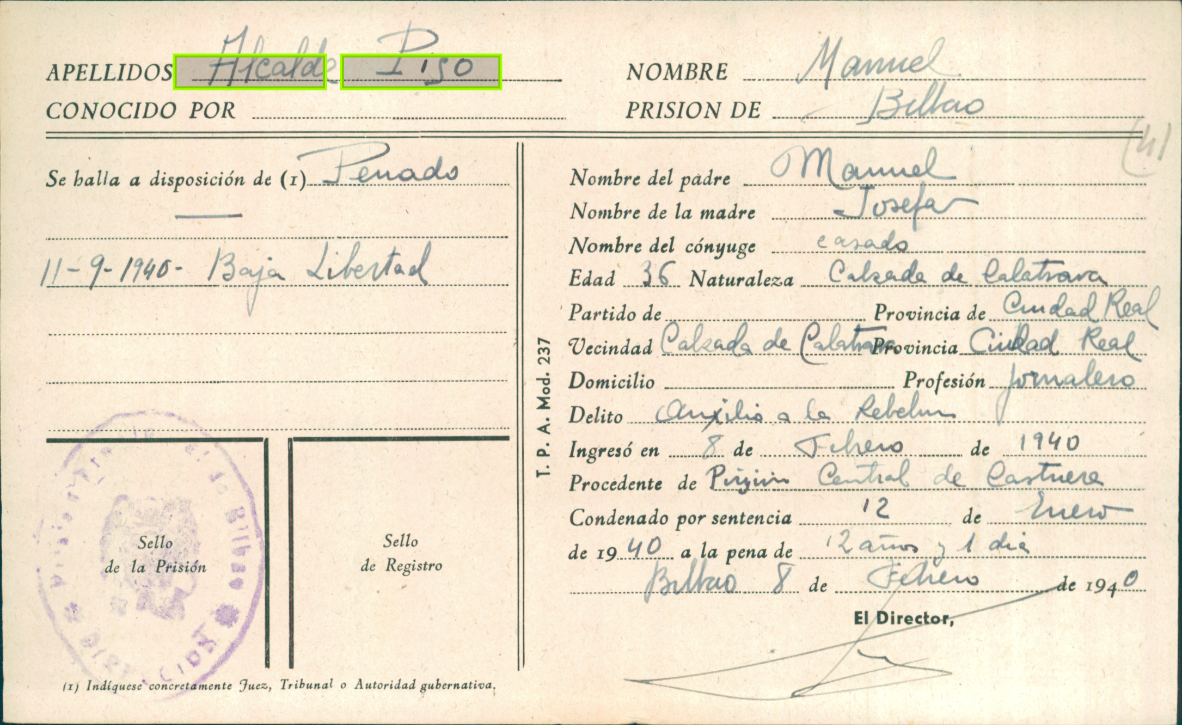 APELLIDOS Alcalde Piso NOMBRE Manuel
CONOCIDO POR PRISION DE Bilbao
(4)
Se halla a disposición de (1) Penado
11-9-1940- Baja Libertad
Sello
de la Prisión
Sello
de Registro
(1) Indíquese concretamente Juez, Tribunal o Autoridad gubernativa.
T. P. A. Mod. 237
Nombre del padre Manuel
Nombre de la madre Josefa
Nombre del cónyuge casado
Edad 36 Naturaleza Calzada de Calatrava
Partido de Provincia de Ciudad Real
Vecindad Calzada de Calatrava Provincia Ciudad Real
Domicilio Profesión Jornalero
Delito Auxilio a la Rebelion
Ingresó en 8 de Febrero de 1940
Procedente de Prision Central de Castuera
Condenado por sentencia 12 de Enero
de 1940 a la pena de 12 años y 1 dia
Bilbao 8 de Febrero de 1940
El Director,